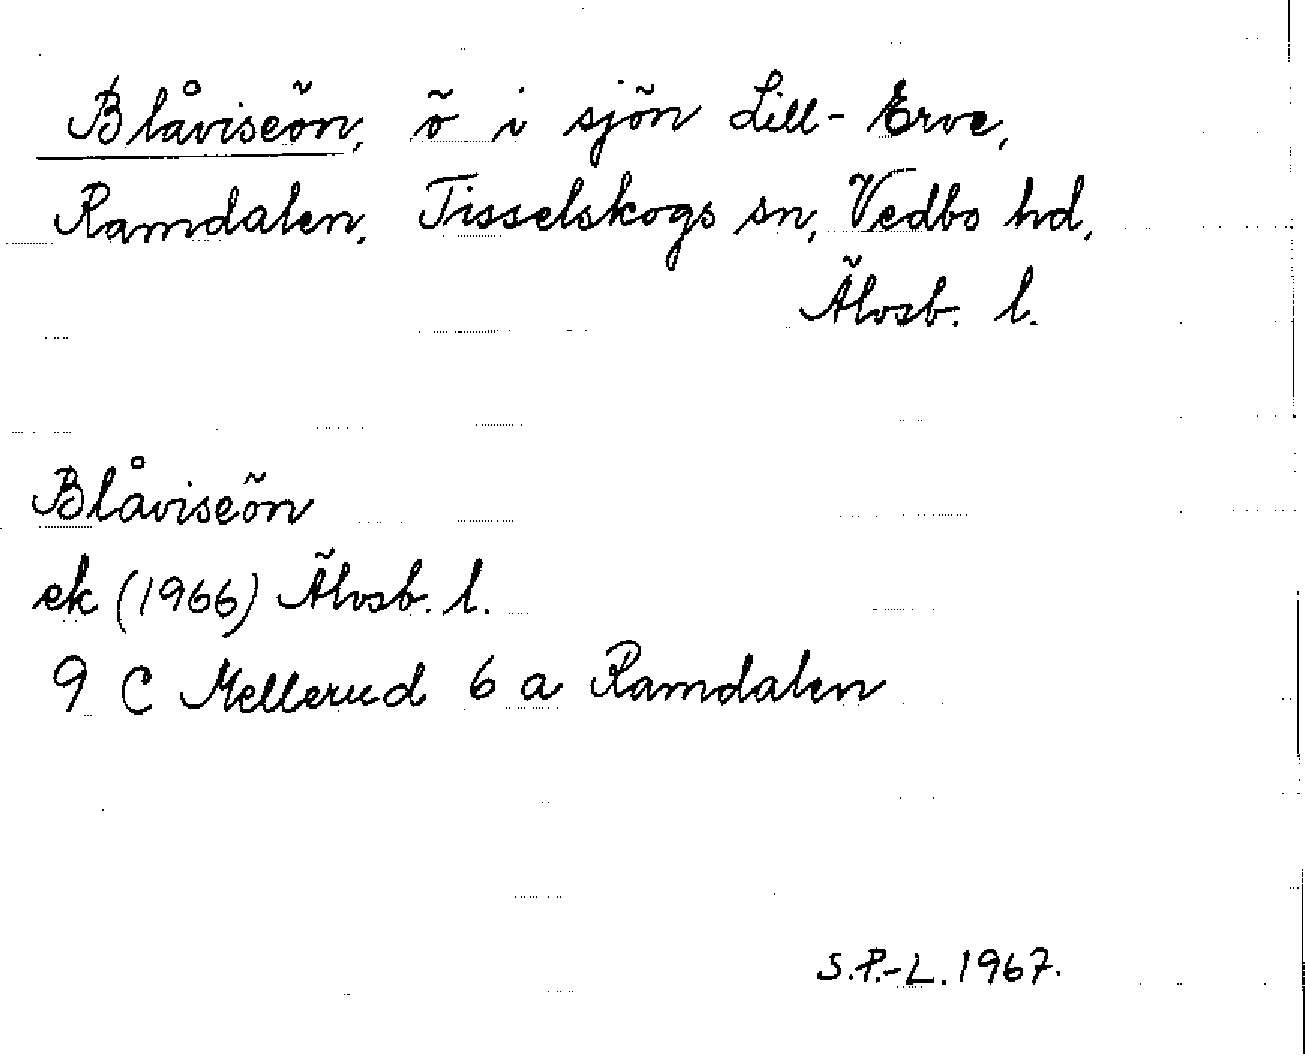 Blåviseön, ö i sjön Lill-Erve,
Ramdalen, Tisselskogs sn, Vedbo hd,
Älvsb. l.
Blåviseön
ek (1966) Älvsb. l.
9 C Mellerud 6 a Ramdalen
S.P.-L. 1967.